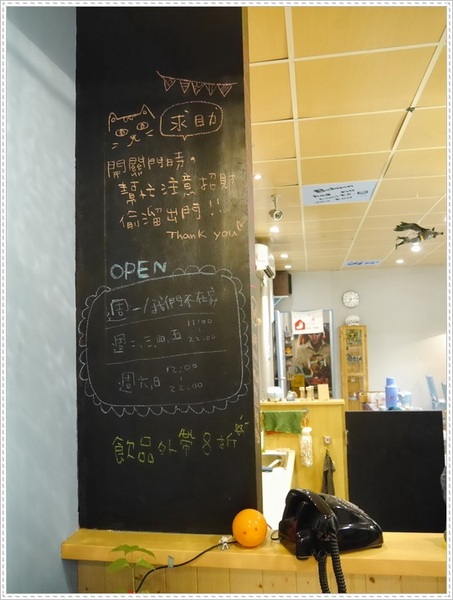 求助
開關門時，
幫忙注意招財
偷溜出門!!
Thank you
OPEN
週一/我們不在家
週二、三、四、五 11:00 | 22:00
週六、日 12:00 | 22:00
飲品外帶8折